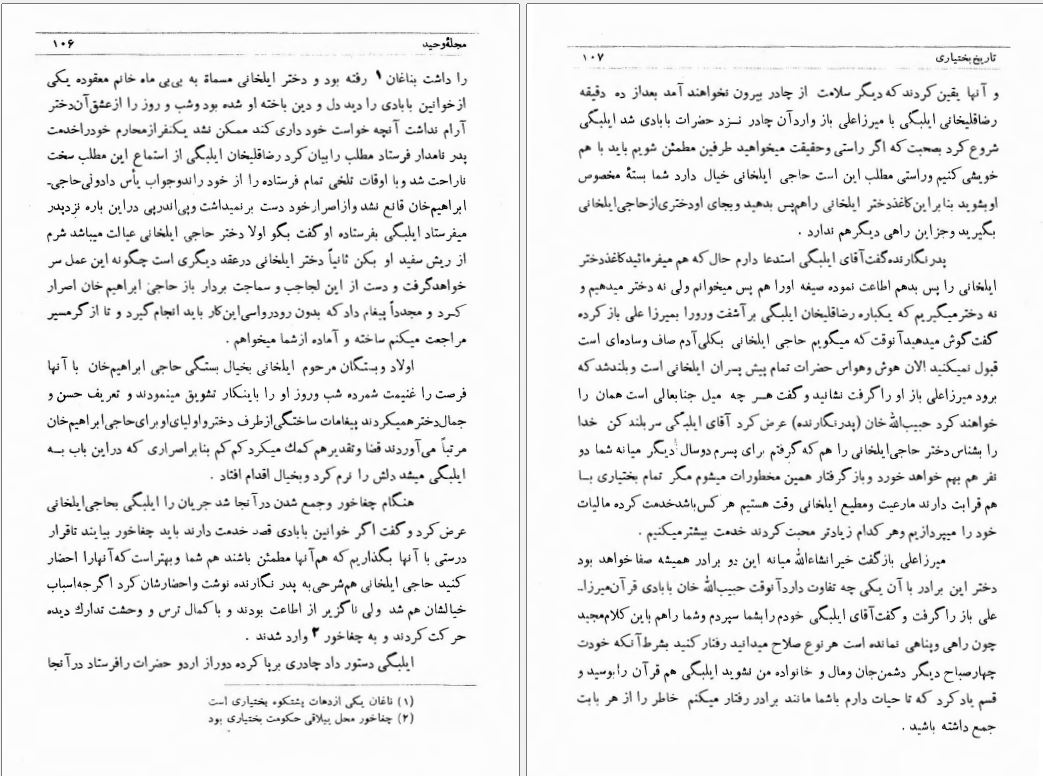 مجلهٔ وحید
۱۰۶
را داشت بناغان ۱ رفته بود و دختر ایلخانی مسماة به بی‌بی ماه خانم معقوده یکی
از خوانین بابادی را دید دل و دین باخته او شده بود وشب و روز را ازعشق آن دختر
آرام نداشت آنچه خواست خود داری کند ممکن نشد یکنفر ازمحارم خودرا خدمت
پدر نامدار فرستاد مطلب را بیان کرد رضاقلیخان ایلبگی از استماع این مطلب سخت
ناراحت شد وبا اوقات تلخی تمام فرستاده را از خود راند وجواب یأس داد ولی حاجی-
ابراهیم‌خان قانع نشد و از اصرار خود دست برنمیداشت وپی‌اندرپی در این باره نزد پدر
میفرستاد ایلبگی بفرستاده او گفت بگو اولا دختر حاجی ایلخانی عیالت میباشد شرم
از ریش سفید او بکن ثانیاً دختر ایلخانی در عقد دیگری است چگونه این عمل سر
خواهد گرفت و دست از این لجاجب و سماجت بردار باز حاجی ابراهیم خان اصرار
کرد و مجدداً پیغام داد که بدون رودرواسی این کار باید انجام گیرد و تا از گرمسیر
مراجعت میکنم ساخته و آماده ازشما میخواهم .
اولاد وبستگان مرحوم ایلخانی بخیال بستگی حاجی ابراهیم‌خان با آنها
فرصت را غنیمت شمرده شب وروز او را باینکار تشویق مینمودند و تعریف حسن و
جمال دختر همیکردند پیغامات ساختگی ازطرف دختر واولیای او برای حاجی ابراهیم‌خان
مرتباً می‌آوردند قضا وتقدیر هم کمك میکرد کم کم بنابر اصراری که در این باب بـه
ایلبگی میشد دلش را نرم کرد وبخیال اقدام افتاد .
هنگام چغاخور وجمع شدن در آنجا شد جریان را ایلبگی بحاجی ایلخانی
عرض کرد و گفت اگر خوانین بابادی قصد خدمت دارند باید چغاخور بیایند تا قرار
درستی با آنها بگذاریم که هم آنها مطمئن باشند هم شما وبهتر است که آنها را احضار
کنید حاجی ایلخانی هم شرحی به پدر نگارنده نوشت واحضارشان کرد اگرچه اسباب
خیالشان هم شد ولی ناگزیر از اطاعت بودند و با کمال ترس و وحشت تدارك دیده
حرکت کردند و به چغاخور ۲ وارد شدند .
ایلبگی دستور داد چادری برپا کرده دور از اردو حضرات را فرستاد در آنجا
(۱) ناغان یکی از دهات پشتکوه بختیاری است
(۲) چغاخور محل ییلاقی حکومت بختیاری بود
تاریخ بختیاری
۱۰۷
و آنها یقین کردند که دیگر سلامت از چادر بیرون نخواهند آمد بعد از ده دقیقه
رضاقلیخانی ایلبگی با میرزاعلی باز وارد آن چادر نـزد حضرات بابادی شد ایلبگی
شروع کرد بصحبت که اگر راستی وحقیقت میخواهید طرفین مطمئن شویم باید با هم
خویشی کنیم وراستی مطلب این است حاجی ایلخانی خیال دارد شما بستهٔ مخصوص
او بشوید بنابراین کاغذ دختر ایلخانی راهم پس بدهید وبجای او دختری از حاجی ایلخانی
بگیرید وجز این راهی دیگر هم ندارد .
پدر نگارنده گفت آقای ایلبگی استدعا دارم حال که هم میفرمائید کاغذ دختر
ایلخانی را پس بدهم اطاعت نموده صیغه او را هم پس میخوانم ولی نه دختر میدهیم و
نه دختر میگیریم که یکباره رضاقلیخان ایلبگی بر آشفت ورورا بمیرزا علی باز کرده
گفت گوش میدهید آنوقت که میگویم حاجی ایلخانی بکلی آدم صاف وساده‌ای است
قبول نمیکنید الان هوش وهواس حضرات تمام پیش پسران ایلخانی است وبلند شد که
برود میرزاعلی باز او را گرفت نشانید و گفت هـر چه میل جنابعالی است همان را
خواهند کرد حبیب‌الله خان (پدر نگارنده) عرض کرد آقای ایلبگی سر بلند کن خدا
را بشناس دختر حاجی ایلخانی را هم که گرفتم برای پسرم دو سال دیگر میانه شما دو
نفر هم بهم خواهد خورد و باز گرفتار همین محظورات میشوم مگر تمام بختیاری بـا
هم قرابت دارند ما رعیت ومطیع ایلخانی وقت هستیم هر کس باشد خدمت کرده مالیات
خود را میپردازیم وهر کدام زیادتر محبت کردند خدمت بیشتر میکنیم .
میرزاعلی باز گفت خیر انشاءالله میانه این دو برادر همیشه صفا خواهد بود
دختر این برادر با آن یکی چه تفاوت دارد آنوقت حبیب‌الله خان بابادی قرآن میرزا-
علی باز را گرفت و گفت آقای ایلبگی خودم را بشما سپردم وشما راهم باین کلام مجید
چون راهی وپناهی نمانده است هر نوع صلاح میدانید رفتار کنید بشرط آنکه خودت
چهار صباح دیگر دشمن جان ومال و خانواده من نشوید ایلبگی هم قرآن را بوسید و
قسم یاد کرد که تا حیات دارم باشما مانند برادر رفتار میکنم خاطر را از هر بابت
جمع داشته باشید .